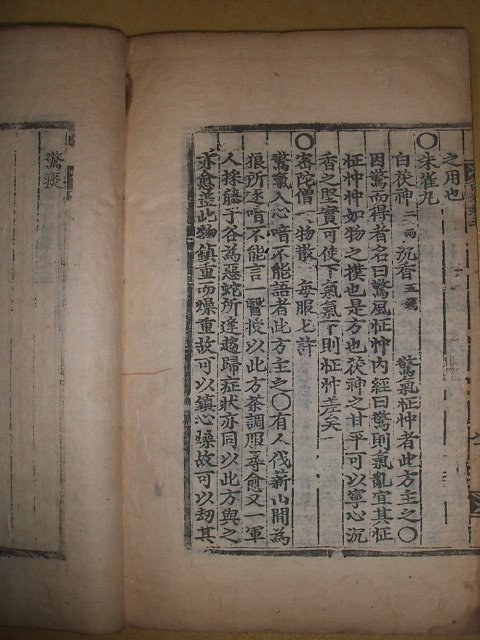 之用也
○朱雀丸
白茯神二兩 沉香五錢 驚氣怔忡者此方主之○
因驚而得者名曰驚風怔忡內經曰驚則氣亂宜其怔
怔忡忡如物之撲也是方也茯神之甘平可以寧心沉
香之堅實可使下氣氣下則怔忡差矣
○密陀僧一物散 每服七許
驚氣入心喑不能語者此方主之○有人伐薪山間為
狼所逐喑不能言一醫授以此方茶調服尋愈又一軍
人採䕽于谷為惡蛇所逐趨歸症狀亦同以此方與之
亦愈盖此物鎮重而燥重故可以鎮心燥故可以刼其
驚痰